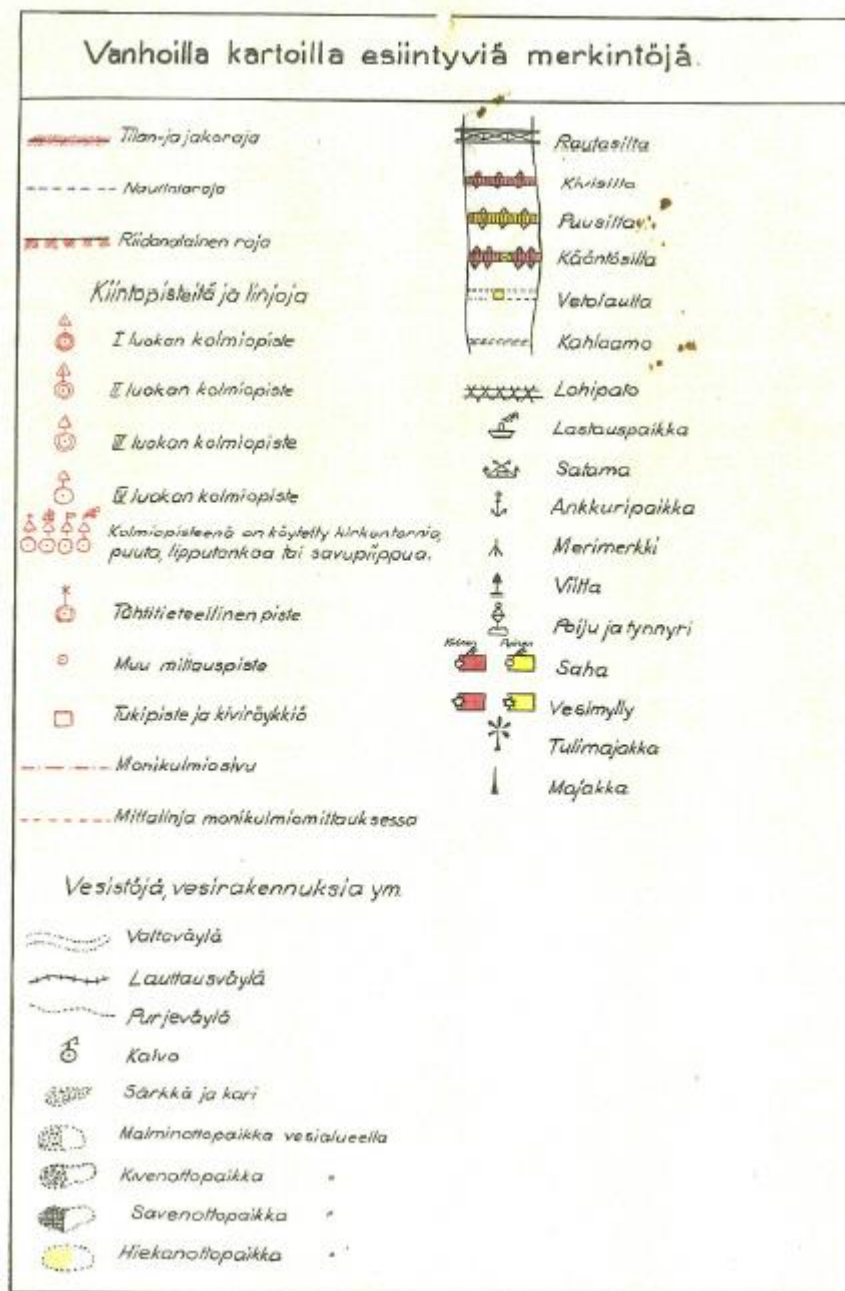 Vanhoilla kartoilla esiintyviä merkintöjä.
Tilan- ja jakoraja
Nautintaraja
Riidanalainen raja
Kiintopisteitä ja linjoja
I luokan kolmiopiste
II luokan kolmiopiste
III luokan kolmiopiste
IV luokan kolmiopiste
Kolmiopisteenä on käytetty kirkontornia,
puuta, lipputankoa tai savupiippua.
Tähtitieteellinen piste
Muu mittauspiste
Tukipiste ja kiviröykkiö
Monikulmiosivu
Mittalinja monikulmiomittauksessa
Vesistöjä, vesirakennuksia ym.
Valtaväylä
Lauttausväylä
Purjeväylä
Kaivo
Särkkä ja kari
Malminottopaikka vesialueella
Kivenottopaikka "
Savenottopaikka "
Hiekanottopaikka "
Rautasilta
Kivisilta
Puusilta
Kääntösilta
Vetolautta
Kahlaamo
Lohipato
Lastauspaikka
Satama
Ankkuripaikka
Merimerkki
Viitta
Poiju ja tynnyri
Saha
Vesimylly
Tulimajakka
Majakka